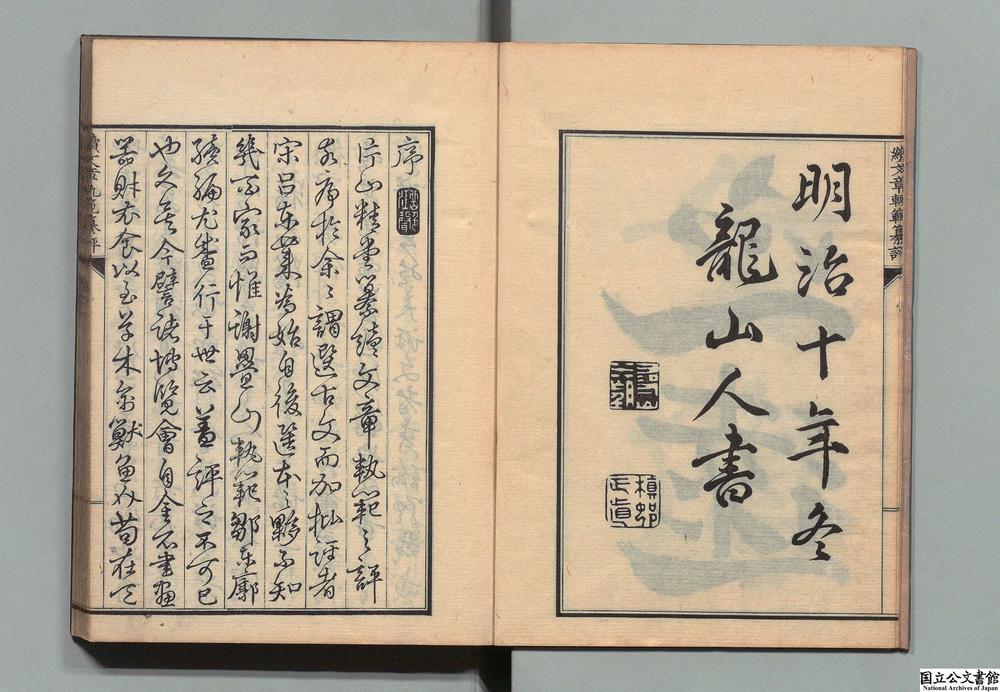 續文章軌範纂評
明治十年冬
龍山人書
序
片山精堂纂續文章軌範之評
者序於余〻謂選古文而加批評者
宋呂東萊爲始自後選本之夥不知
幾百家而惟謝疊山軌範鄒東廓
續編尤盛行于世云蓋評之不可已
也久矣今譬諸博覽會自金石書畫
器財衣食以至草木禽獸魚介苟在
國立公文書館
National Archives of Japan